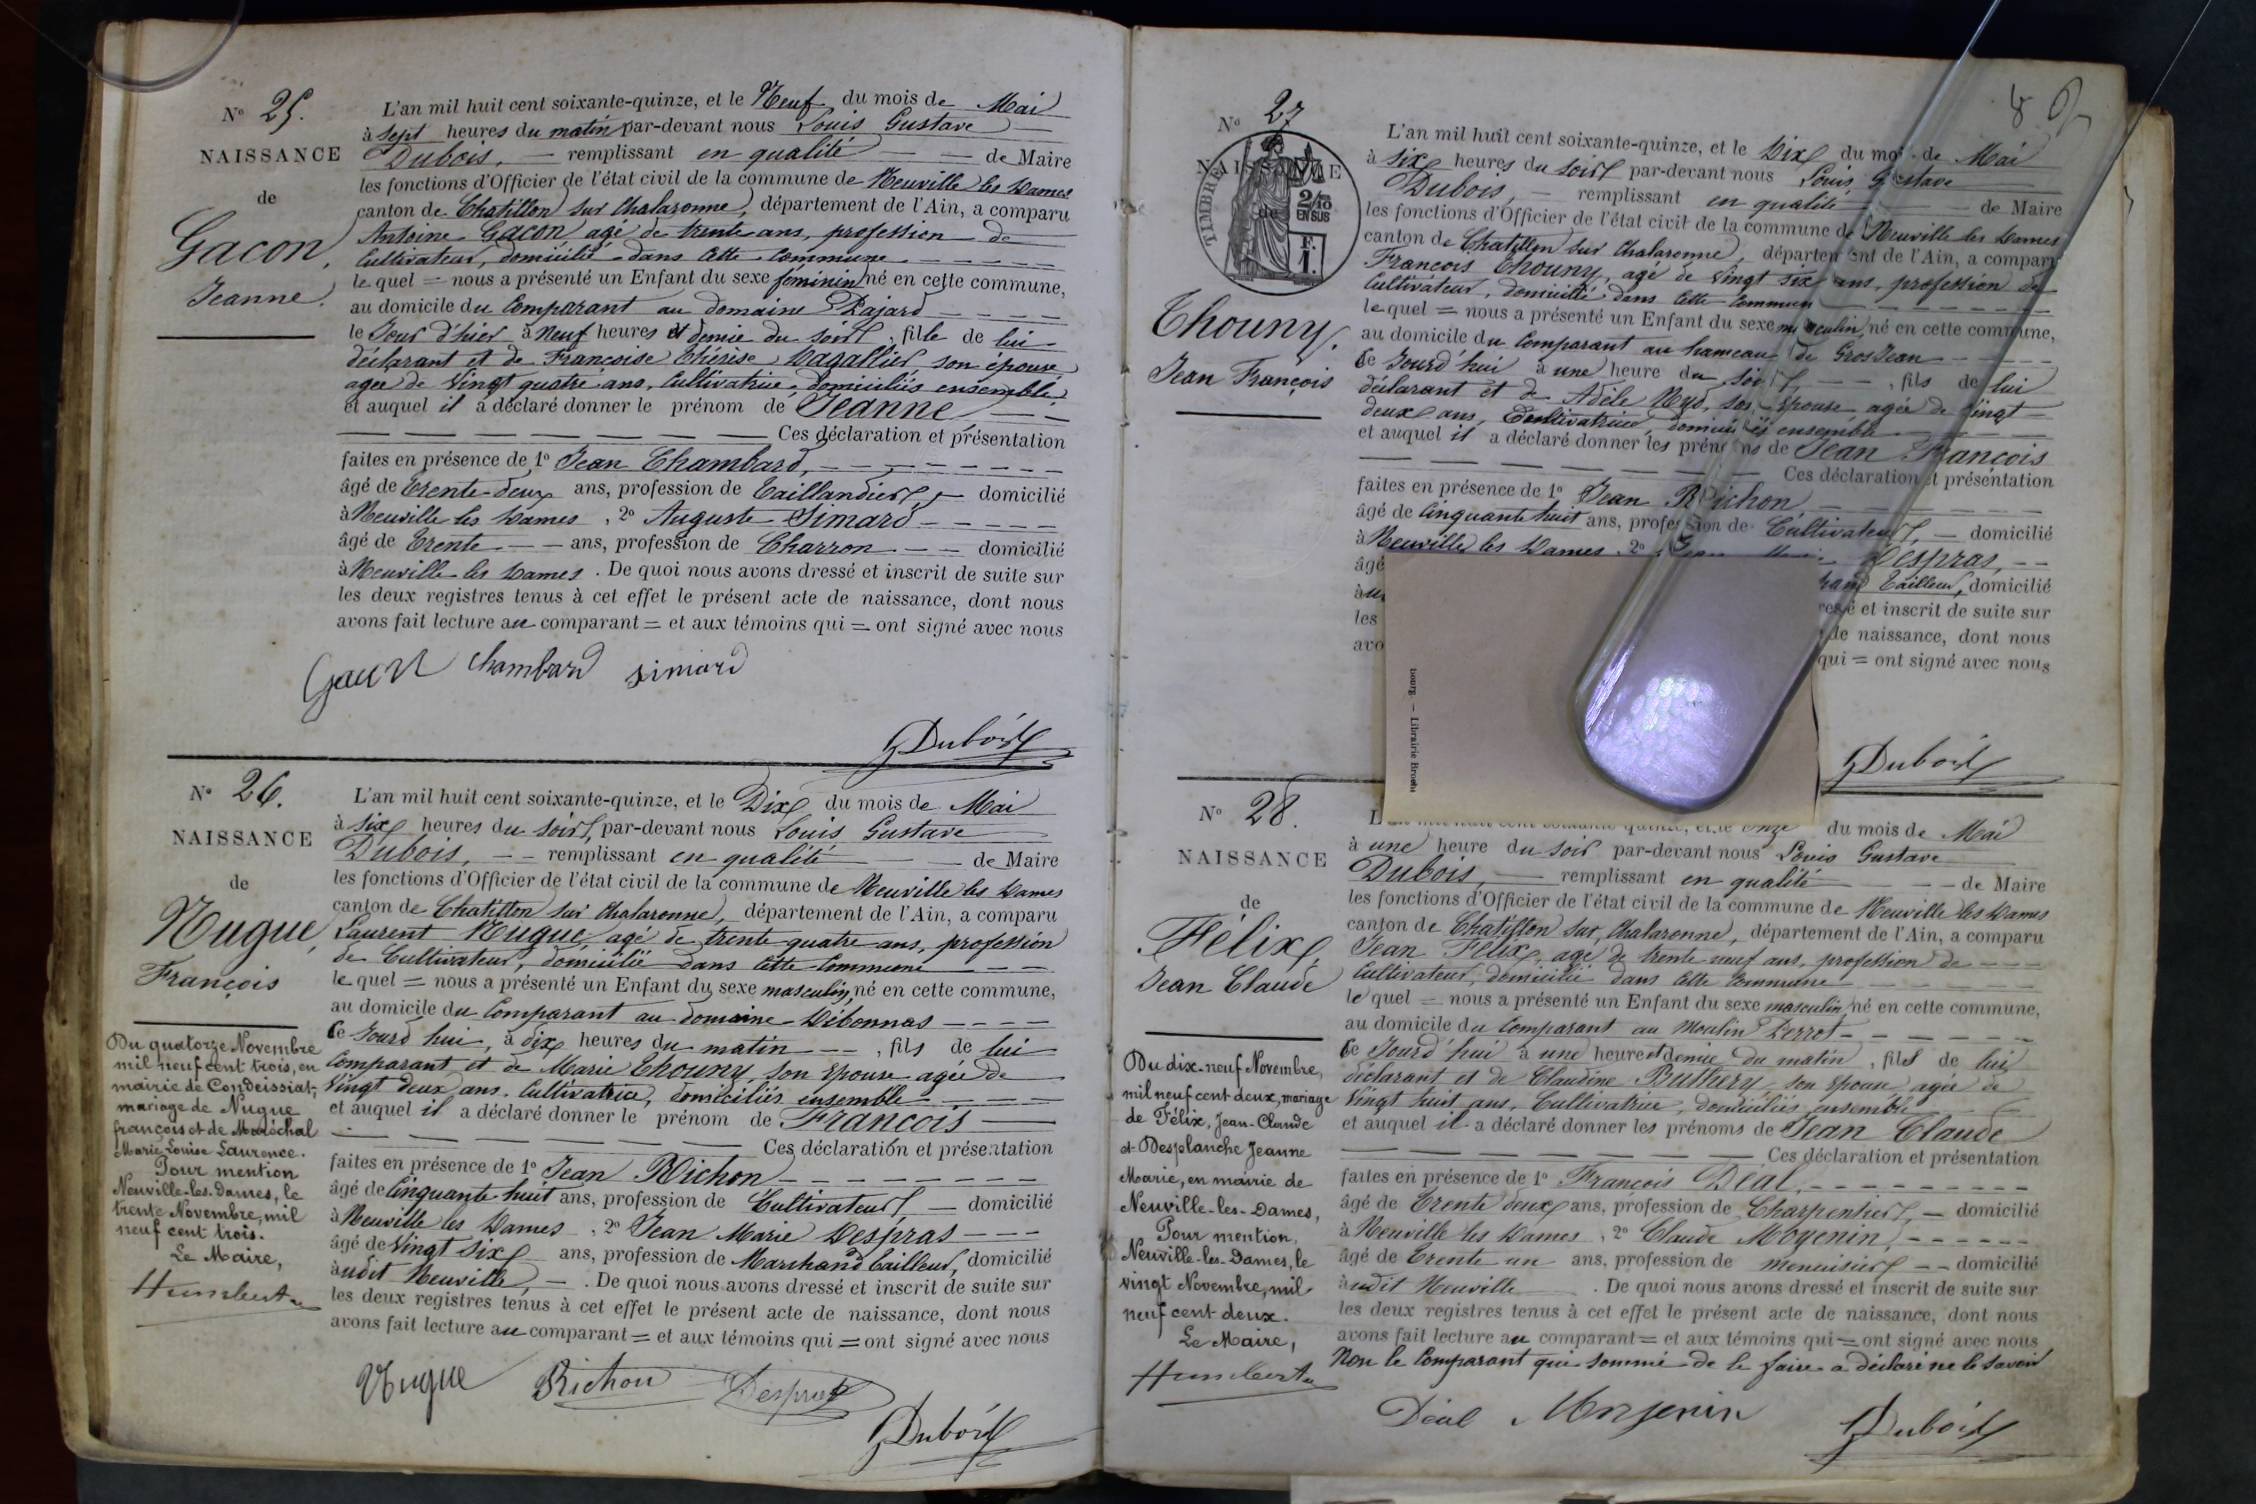 N° 25.
NAISSANCE
de
Gacon,
Jeanne.
L'an mil huit cent soixante-quinze, et le Neuf du mois de Mai
à sept heures du matin par-devant nous Louis Gustave
Dubois, — remplissant en qualité — — de Maire
les fonctions d'Officier de l'état civil de la commune de Neuville les Dames
canton de Chatillon sur Chalaronne, département de l'Ain, a comparu
Antoine Gacon agé de trente ans, profession de
Cultivateur, domicilié dans cette commune
le quel = nous a présenté un Enfant du sexe féminin né en cette commune,
au domicile du Comparant au domaine Pajard
le Jour d'hier à Neuf heures et demie du soir, fille de lui
déclarant et de Françoise Thérèse Magallier, son épouse
agée de Vingt quatre ans, Cultivatrice, domiciliés ensemble
et auquel il a déclaré donner le prénom de Jeanne
Ces déclaration et présentation
faites en présence de 1° Jean Chambard,
âgé de Trente-deux ans, profession de Taillandier, — domicilié
à Neuville les Dames, 2° Auguste Simard
âgé de Trente — — ans, profession de Charron — — domicilié
à Neuville les Dames. De quoi nous avons dressé et inscrit de suite sur
les deux registres tenus à cet effet le présent acte de naissance, dont nous
avons fait lecture au comparant = et aux témoins qui = ont signé avec nous
Gacon Chambard Simard
GDubois
N° 26.
NAISSANCE
de
Nugue,
François
Du quatorze Novembre
mil neuf cent trois, en
mairie de Condeissiat,
mariage de Nugue
françois et de Maréchal
Marie Louise Laurence.
Pour mention
Neuville-les-Dames, le
trente Novembre, mil
neuf cent trois.
Le Maire,
Humbert
L'an mil huit cent soixante-quinze, et le Dix du mois de Mai
à six heures du soir, par-devant nous Louis Gustave
Dubois, — — remplissant en qualité — — de Maire
les fonctions d'Officier de l'état civil de la commune de Neuville les Dames
canton de Chatillon sur Chalaronne, département de l'Ain, a comparu
Laurent Nugue, agé de trente quatre ans, profession
de Cultivateur, domicilié dans cette Commune
le quel = nous a présenté un Enfant du sexe masculin, né en cette commune,
au domicile du Comparant au domaine Dibonnas
Ce Jourd'hui, à dix heures du matin — —, fils de lui
Comparant et de Marie Chouny, son Epouse agée de
Vingt deux ans, Cultivatrice, domiciliés ensemble
et auquel il a déclaré donner le prénom de François
Ces déclaration et présentation
faites en présence de 1° Jean Richon
âgé de Cinquante huit ans, profession de Cultivateur, — domicilié
à Neuville les Dames, 2° Jean Marie Despras
âgé de Vingt six ans, profession de Marchand Tailleur, domicilié
audit Neuville, — . De quoi nous avons dressé et inscrit de suite sur
les deux registres tenus à cet effet le présent acte de naissance, dont nous
avons fait lecture au comparant = et aux témoins qui = ont signé avec nous
Nugue Richon Despras
GDubois
8
N° 27
NAISSANCE
de
TIMBRE
2/10
EN SUS
F.
I.
Chouny.
Jean François
L'an mil huit cent soixante-quinze, et le Dix du mois de Mai
à six heures du soir, par-devant nous Louis Gustave
Dubois, — remplissant en qualité — de Maire
les fonctions d'Officier de l'état civil de la commune de Neuville les Dames
canton de Chatillon sur Chalaronne, département de l'Ain, a comparu
François Chouny, agé de Vingt six ans, profession de
Cultivateur, domicilié dans cette Commune
le quel = nous a présenté un Enfant du sexe masculin, né en cette commune,
au domicile du Comparant au hameau de Gros Jean
Ce Jourd'hui à une heure du soir, — —, fils de lui
déclarant et de Adèle Nyd, son Epouse agée de Vingt
deux ans, Cultivatrice, domiciliés ensemble
et auquel il a déclaré donner les prénoms de Jean François
Ces déclaration et présentation
faites en présence de 1° Jean Richon
âgé de Cinquante huit ans, profession de Cultivateur, — domicilié
à Neuville les Dames, 2° Despras,
âgé Tailleur, domicilié
et inscrit de suite sur
les de naissance, dont nous
avo qui = ont signé avec nous
bourg. — Librairie
GDubois
N° 28.
NAISSANCE
de
Félix,
Jean Claude
Du dix-neuf Novembre,
mil neuf cent deux, mariage
de Félix, Jean-Claude
et Desplanche Jeanne
Marie, en mairie de
Neuville-les-Dames,
Pour mention,
Neuville-les-Dames, le
vingt Novembre, mil
neuf cent deux.
Le Maire,
Humbert
L'an mil huit cent soixante-quinze, et le Onze du mois de Mai
à une heure du soir par-devant nous Louis Gustave
Dubois, — remplissant en qualité — — de Maire
les fonctions d'Officier de l'état civil de la commune de Neuville les Dames
canton de Chatillon sur Chalaronne, département de l'Ain, a comparu
Jean Félix, agé de trente neuf ans, profession de
Cultivateur, domicilié dans cette Commune
le quel = nous a présenté un Enfant du sexe masculin né en cette commune,
au domicile du Comparant au Moulin Perrot
Ce Jourd'hui à une heure et demie du matin, fils de lui
déclarant et de Claudine Buthery, son Epouse agée de
Vingt huit ans, Cultivatrice, domiciliés ensemble
et auquel il a déclaré donner les prénoms de Jean Claude
Ces déclaration et présentation
faites en présence de 1° François Déal,
âgé de Trente deux ans, profession de Charpentier, — domicilié
à Neuville les Dames, 2° Claude Moyenin,
âgé de Trente un ans, profession de menuisier — — domicilié
audit Neuville . De quoi nous avons dressé et inscrit de suite sur
les deux registres tenus à cet effet le présent acte de naissance, dont nous
avons fait lecture au comparant = et aux témoins qui = ont signé avec nous
Non le Comparant qui sommé de le faire a déclaré ne le savoir
Déal Moyenin
GDubois